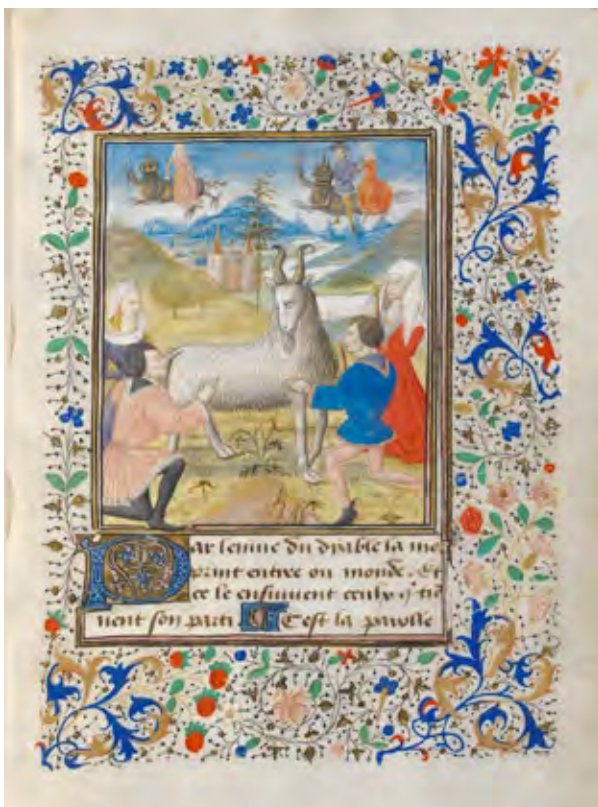 Par lenuie du dyable la
print entree ou monde. Et
ce le ensuiuent ceulx q
nent son parti ¶ Cest la parolle